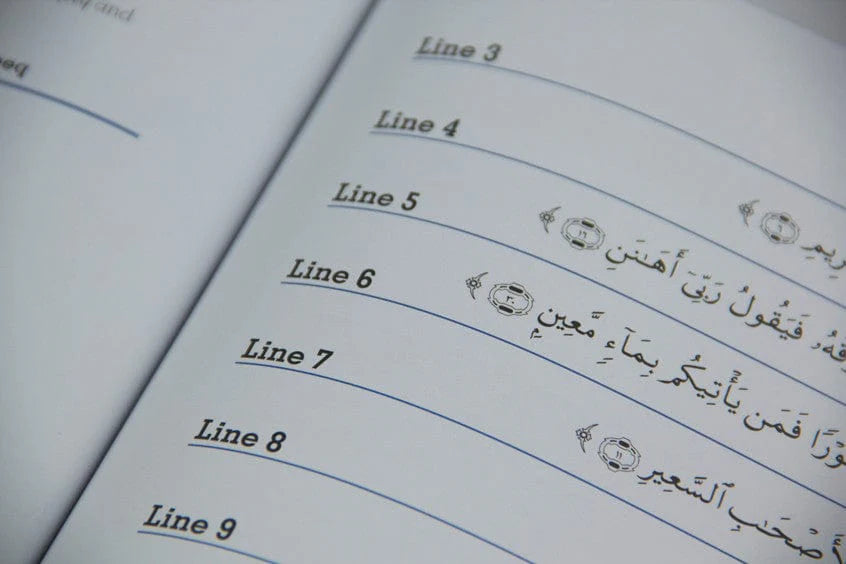 and
Line 3
Line 4 ريمِ ﴿٦﴾
Line 5 قَهُۥ فَيَقُولُ رَبِّىٓ أَهَـٰنَنِ ﴿١٦﴾
Line 6 وْرًا فَمَن يَأْتِيكُم بِمَآءٍ مَّعِينٍۭ ﴿٣٠﴾
Line 7 أَصْحَـٰبِ ٱلسَّعِيرِ ﴿١١﴾
Line 8
Line 9